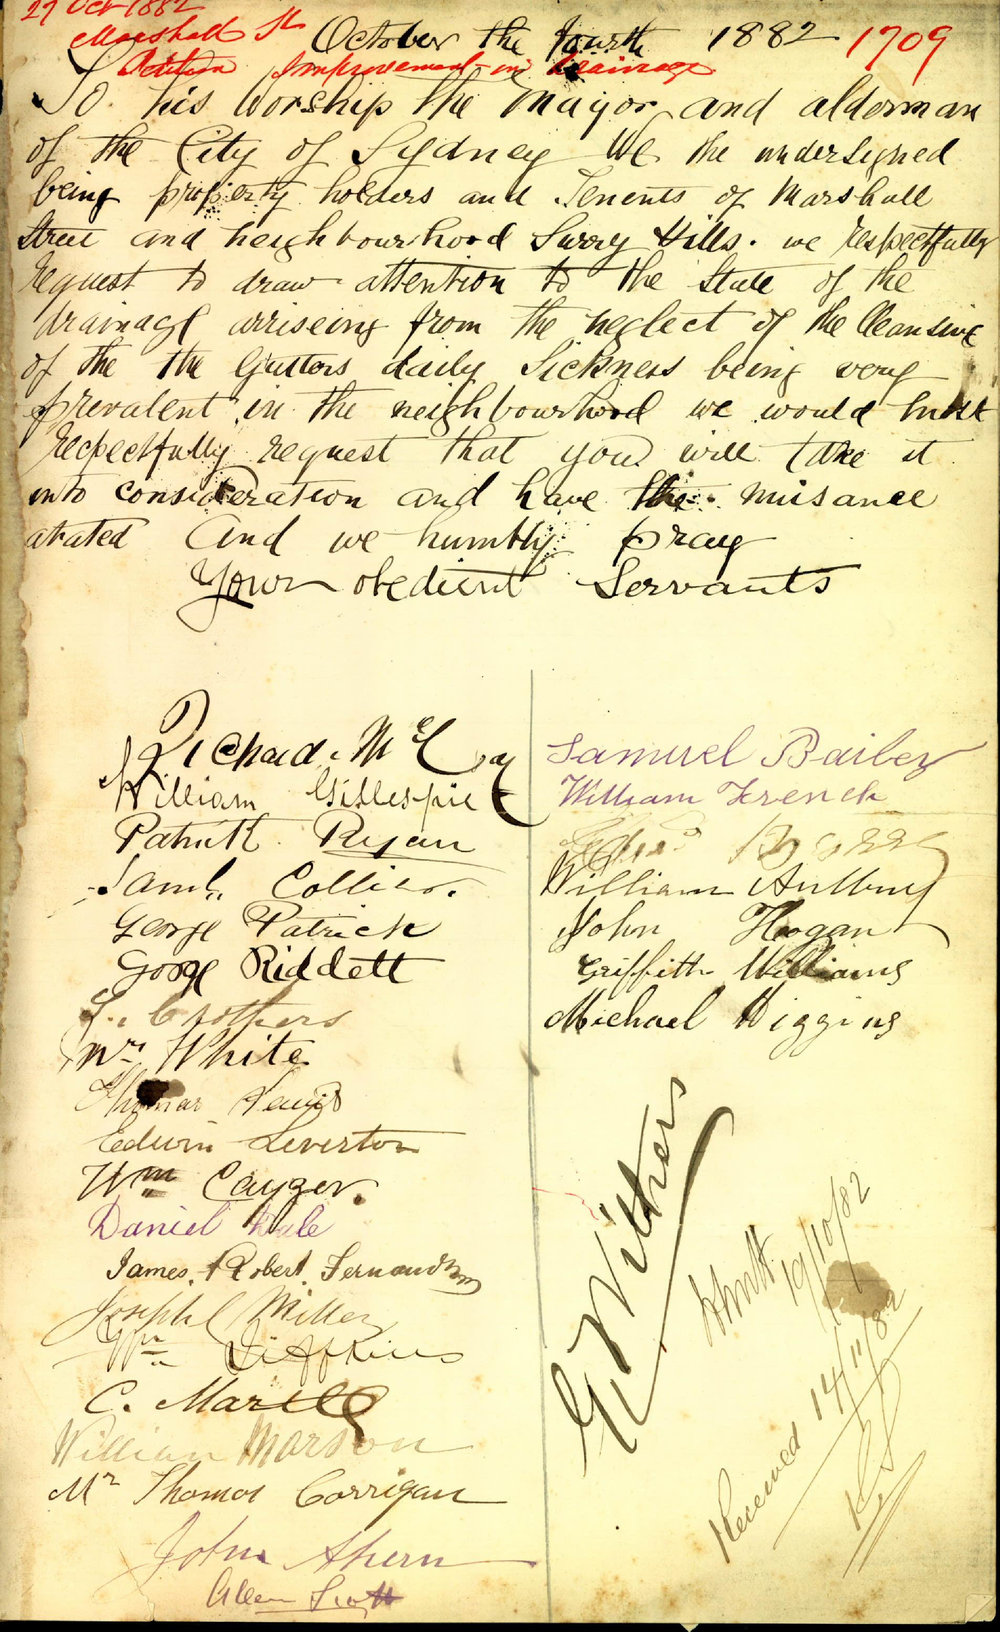 27 Oct 1882
Marshall St
October the fourth 1882 1709
Petition Improvement in drainage
To his Worship the Mayor and alderman
of the City of Sydney We the undersigned
being property holders and Tenents of Marshall
Street and neighbourhood Surry Hills. we respectfully
request to draw attention to the State of the
drainage arriseing from the neglect of the Cleansing
of the the Guttors daily Sickness being very
prevalent in the neighbourhood we would
respectfully request that you will take it
into consideration and have the nuisance
abated And we humbly pray
Your obedient Servants
Richard
William Gillespie
Patrick Ryan
Saml. Collier.
George Patrick
George Riddett
Crothers
Mrs White
Thomas Lewis
Edwin Leverton
Wm Cayger.
Daniel Dale
James. Robert.
Joseph Miller
Wm
C. Martell
William Marson
Mr Thomas Corrigan
John Ahern
Allen Scott
Samuel Bailey
William French
William Anthony
John Hogan
Griffith Williams
Michael Higgins
G Withers
19/10/82
Received 14/11/82